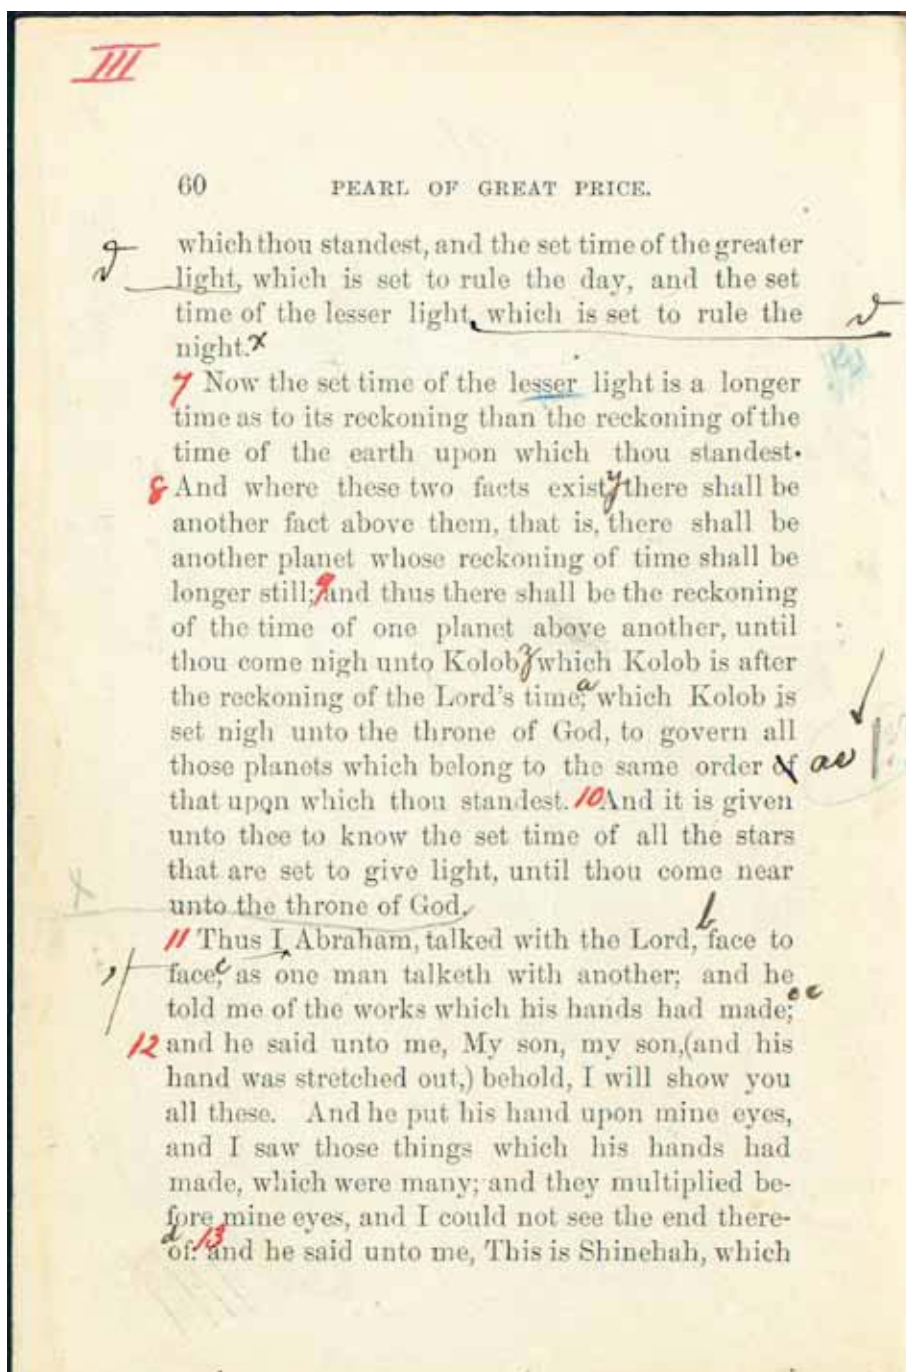 III
60 PEARL OF GREAT PRICE.
which thou standest, and the set time of the greater
light, which is set to rule the day, and the set
time of the lesser light, which is set to rule the
night. x
7 Now the set time of the lesser light is a longer
time as to its reckoning than the reckoning of the
time of the earth upon which thou standest.
8 And where these two facts exist, y there shall be
another fact above them, that is, there shall be
another planet whose reckoning of time shall be
longer still; 9 and thus there shall be the reckoning
of the time of one planet above another, until
thou come nigh unto Kolob, z which Kolob is after
the reckoning of the Lord's time; a which Kolob is
set nigh unto the throne of God, to govern all
those planets which belong to the same order of as
that upon which thou standest. 10 And it is given
unto thee to know the set time of all the stars
that are set to give light, until thou come near
x unto the throne of God.
11 Thus I, Abraham, talked with the Lord, b face to
face, c as one man talketh with another; and he
told me of the works which his hands had made; cc
12 and he said unto me, My son, my son, (and his
hand was stretched out,) behold, I will show you
all these. And he put his hand upon mine eyes,
and I saw those things which his hands had
made, which were many; and they multiplied be-
fore mine eyes, and I could not see the end there-
of. d 13 and he said unto me, This is Shinehah, which